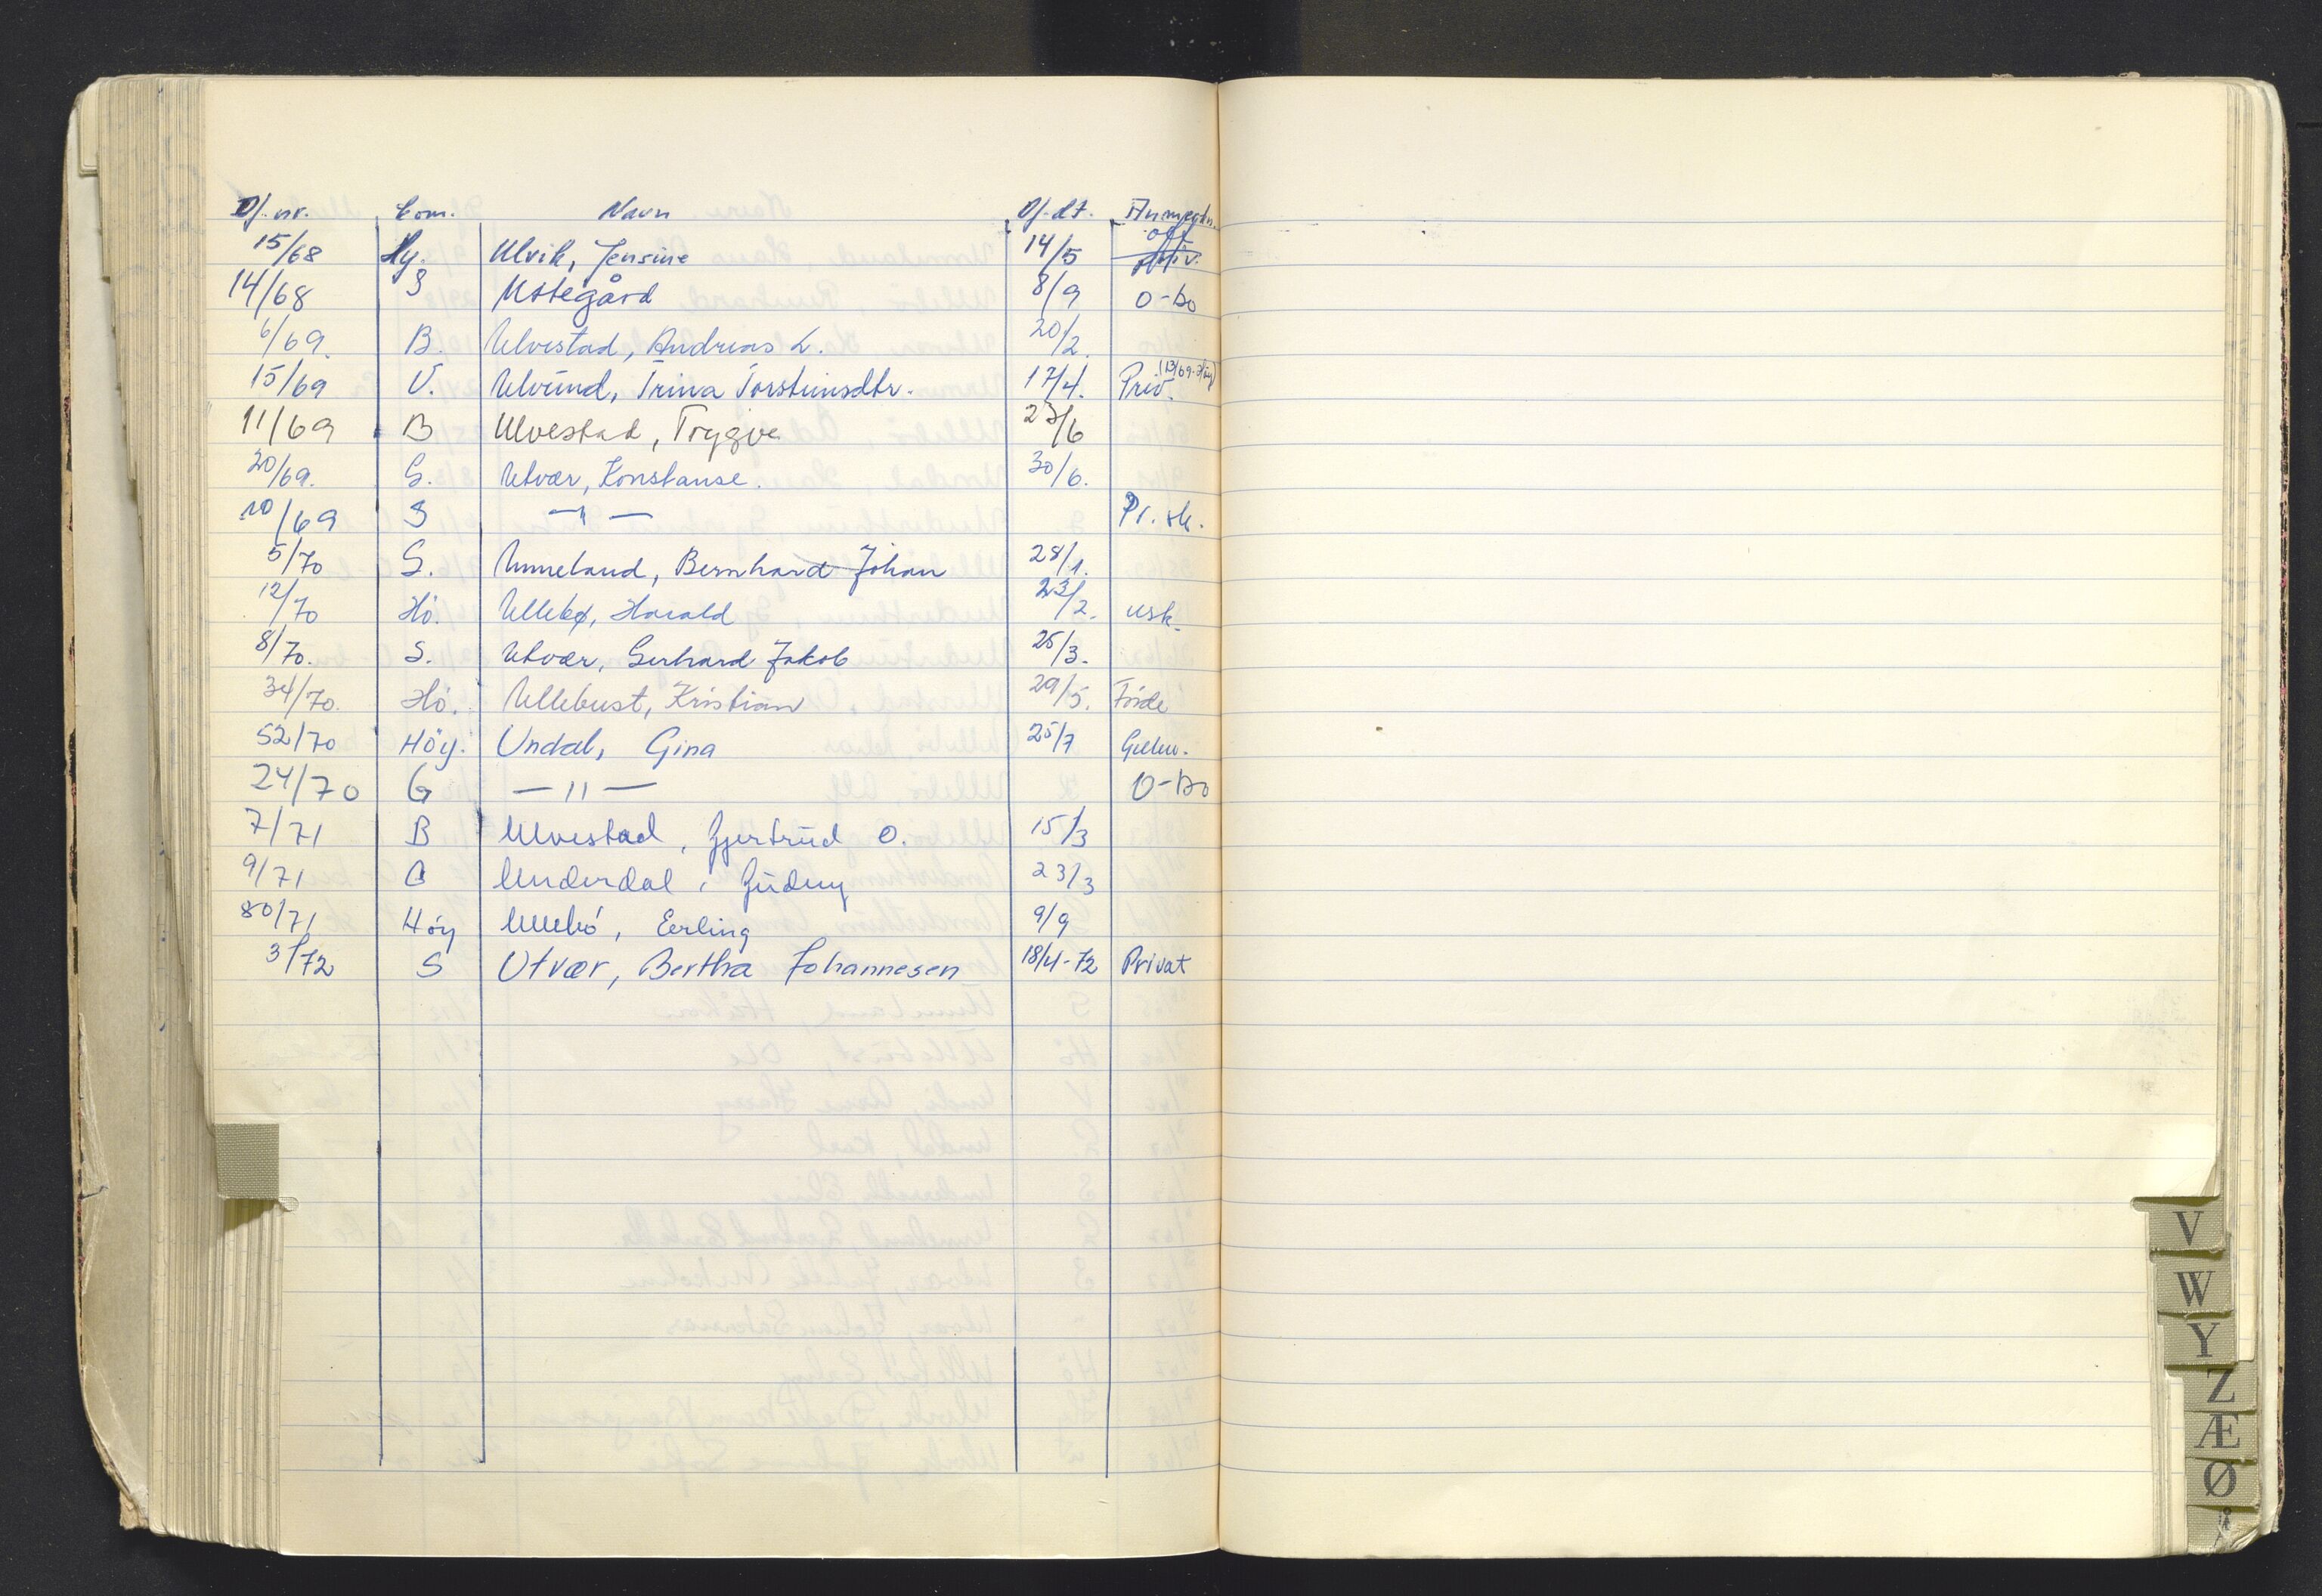 Df. nr. Kom. Navn Df. dt. Anmerkn.
15/68 Hy. Ulvik, Jensine 14/5 off
14/68 S Utegård 8/9 O-bo
6/69. B. Ulvestad, Andreas L. 20/2.
15/69 V. Utvund, Trina Torsteinsdtr. 17/4. Priv.
11/69 B Ulvestad, Trygve 23/6
20/69. S. Utvær, Konstanse. 30/6.
10/69 S —"— Pr. sk.
5/70 S. Unneland, Bernhard Johan 28/1.
12/70 Hö. Ullebø, Harald 23/2. usk.
8/70. S. Utvær, Gerhard Jakob 25/3.
34/70. Hö. Ullebust, Kristian 29/5. Förde
52/70 Höy. Undal, Gina 25/7
24/70 G —"— O-bo
7/71 B Ulvestad, Gjertrud O. 15/3
9/71 Underdal, Gudny 23/3
80/71 Höy Ullebö, Eerling 9/9
3/72 S Utvær, Bertha Johannesen 18/4-72 Privat
V
W
Y
Z
Æ
Ø
Å